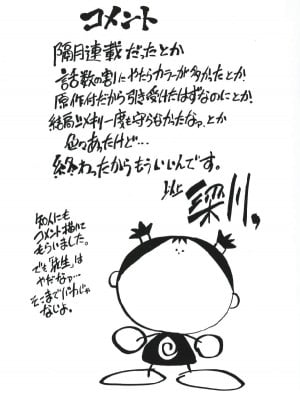 コメント
隔月連載だったとか
話数の割にやたらカラーが多かったとか
原作付だから引き受けたはずなのにとか
結局〆メ切り一度も守らなかったなァ、とか
色々あったけど…
終わったからもういいんです。
以上
梁川。
知人にも
コメント描いて
もらいました。
でも「先生」は
やだなァ…
そこまで
なじょ。